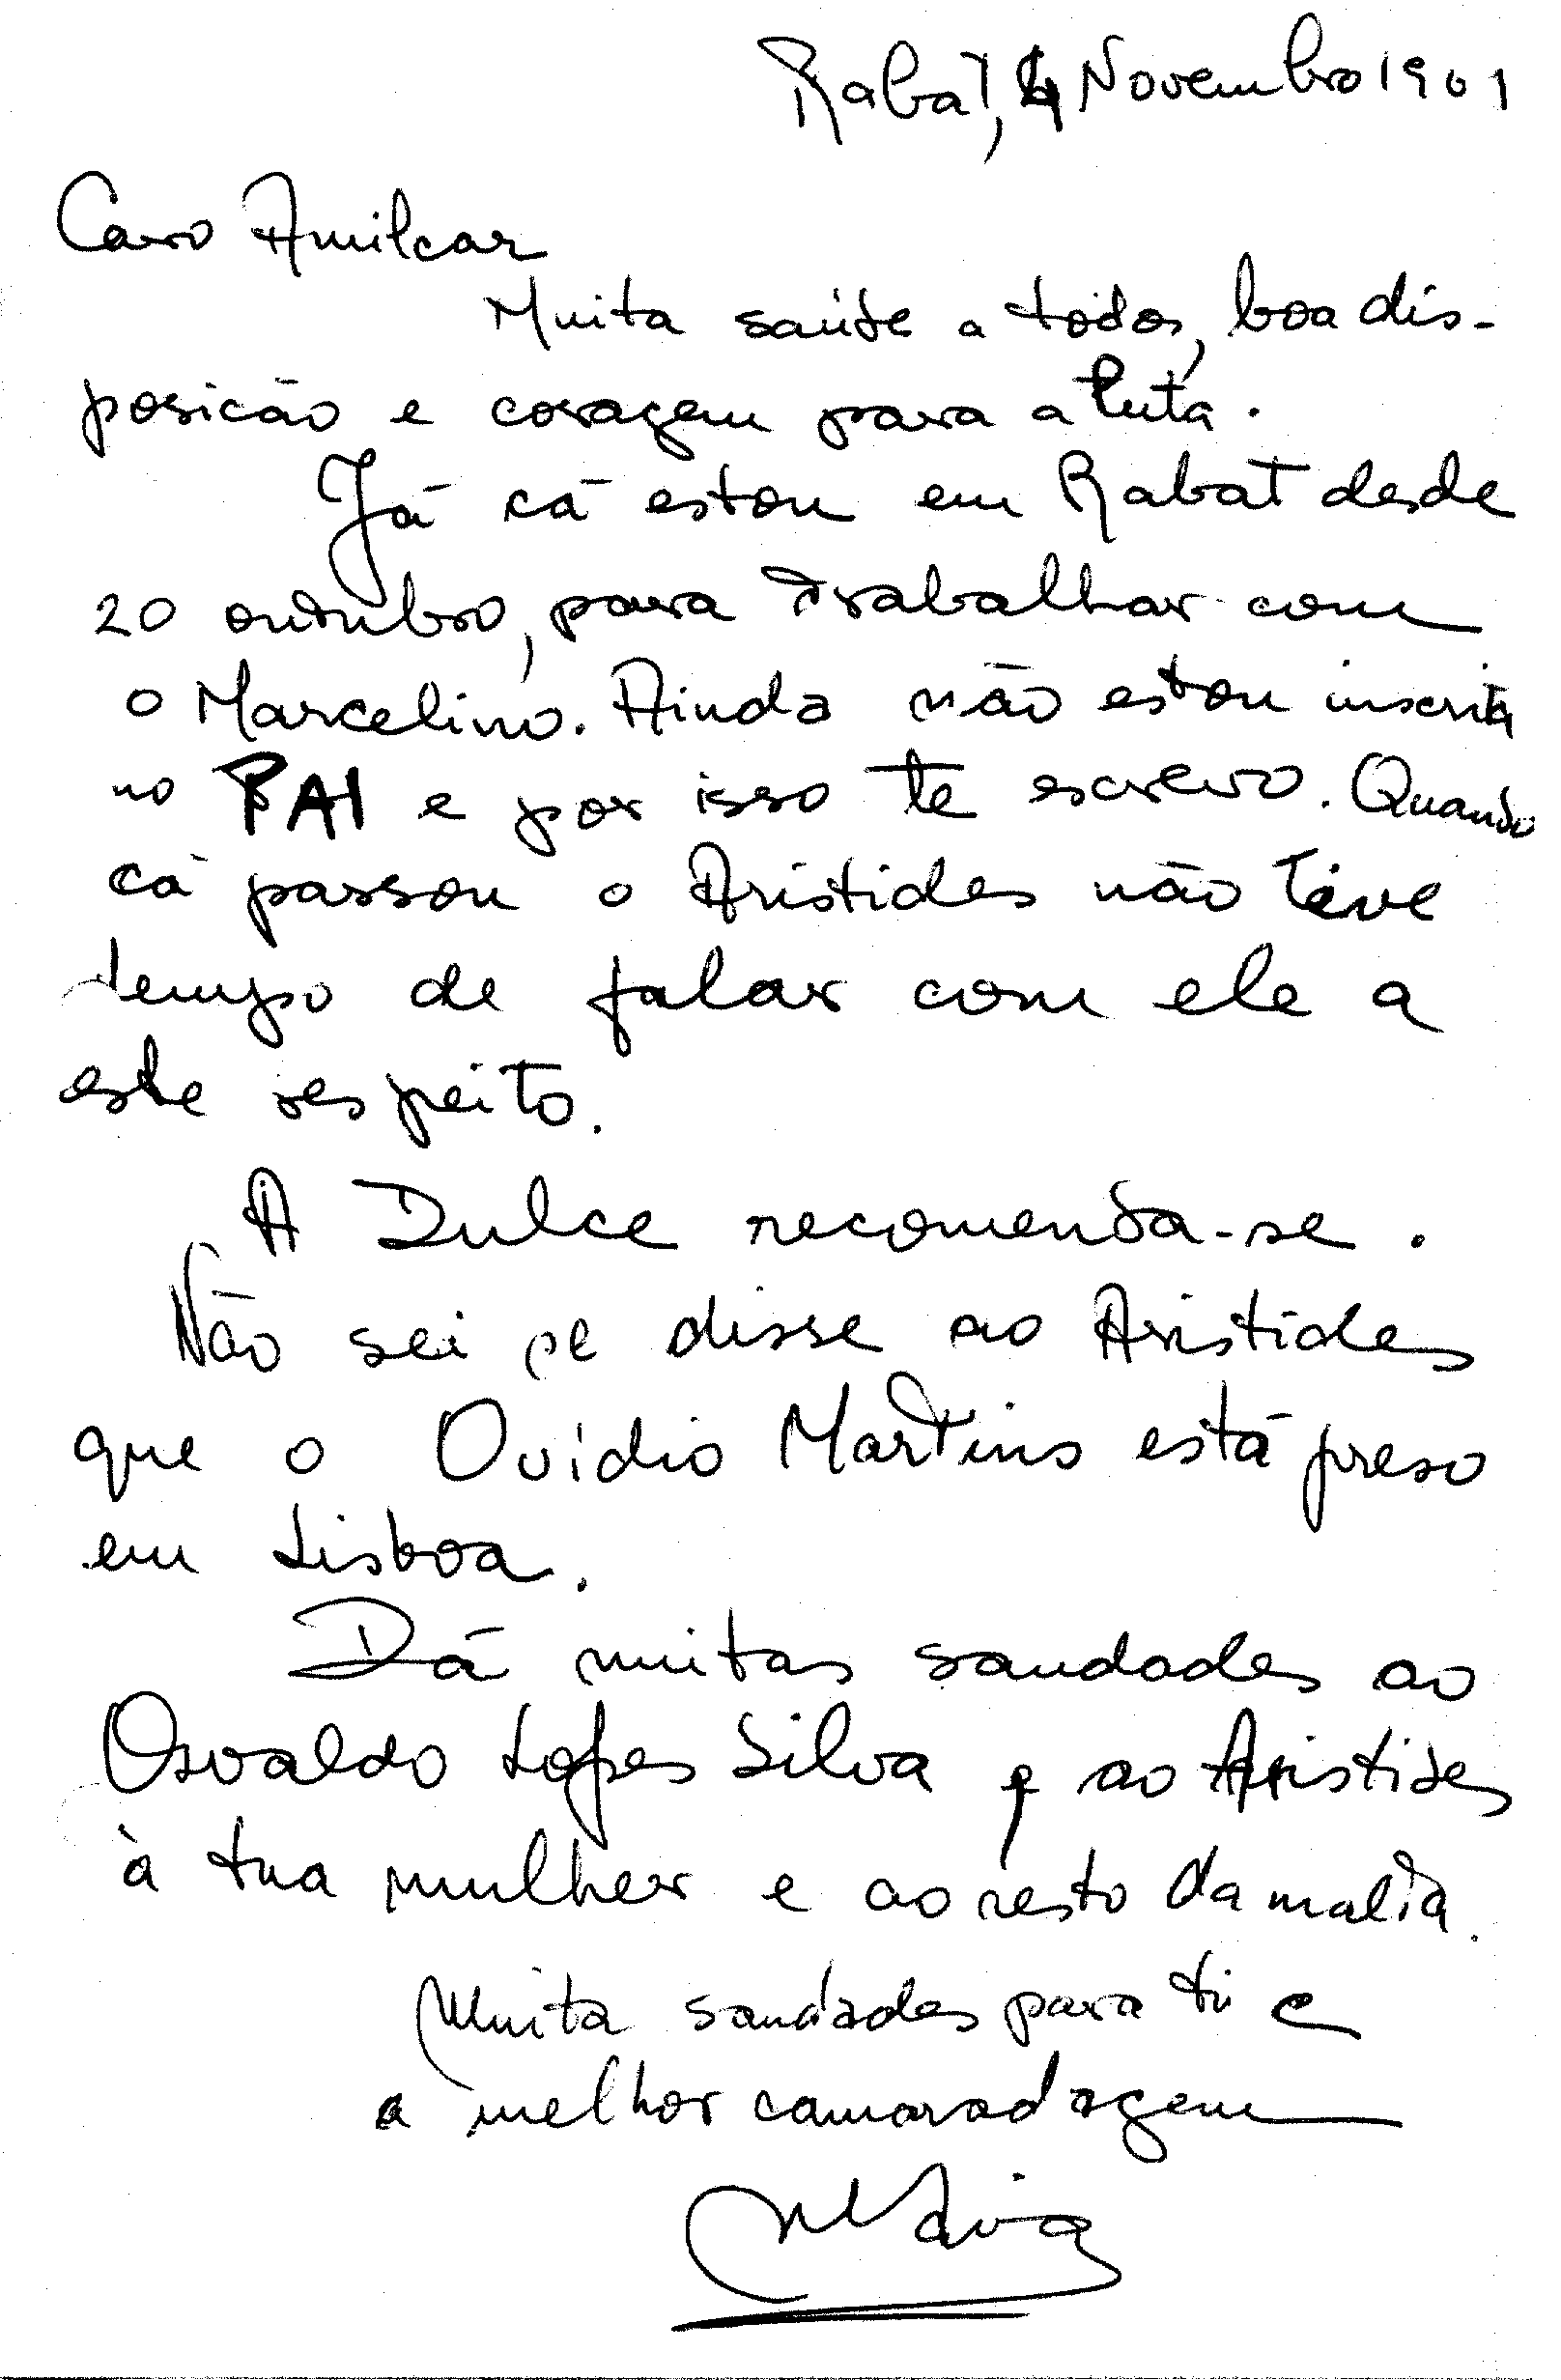 Rabat, 4 Novembro 1961
Caro Amilcar
Muita saúde a todos, boa dis-
posicão e coragem para a luta.
Já cá estou em Rabat desde
20 outubro, para trabalhar com
o Marcelino. Ainda não estou inscrita
no PAI e por isso te escrevo. Quando
cá passou o Aristides não tive
tempo de falar com ele a
este respeito.
A Dulce recomenda-se.
Não sei se disse ao Aristides
que o Ovídio Martins está preso
em Lisboa.
Dá muitas saudades ao
Osvaldo Lopes Silva e ao Aristides
à tua mulher e ao resto da malta.
Muita saudades para ti e
a melhor camaradagem